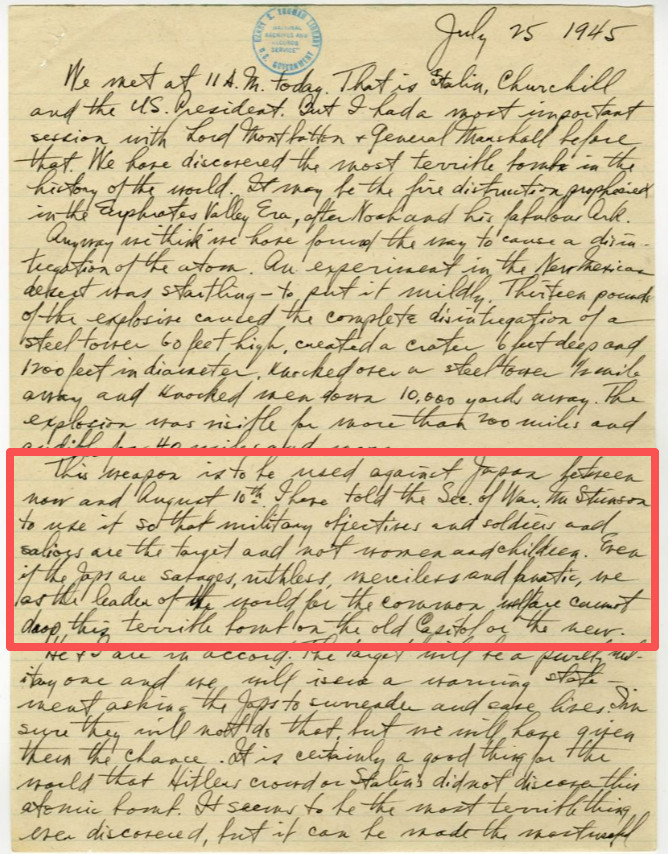 July 25 1945
HARRY S. TRUMAN LIBRARY
NATIONAL
ARCHIVES AND
RECORDS
SERVICE
U.S. GOVERNMENT
We met at 11 A.M. today. That is Stalin, Churchill
and the U.S. President. But I had a most important
session with Lord Montbatton & General Marshall before
that. We have discovered the most terrible bomb in the
history of the world. It may be the fire distruction prophosied
in the Euphrates Valley Era, after Noah and his fabulous Ark.
Anyway we think we have found the way to cause a disin-
tegration of the atom. An experiment in the New Mexican
desert was startling - to put it mildly. Thirteen pounds
of the explosive caused the complete disintegration of a
steel tower 60 feet high, created a crater 6 feet deep and
1200 feet in diameter, knocked over a steel tower 1/2 mile
away and knocked men down 10,000 yards away. The
explosion was visible for more than 200 miles and
audible for 40 miles and more.
This weapon is to be used against Japan between
now and August 10th. I have told the Sec. of War, Mr Stimson
to use it so that military objectives and soldiers and
sailors are the target and not women and children. Even
if the Japs are savages, ruthless, merciless and fanatic, we
as the leader of the world for the common welfare cannot
drop this terrible bomb on the old Capitol or the new.
He & I are in accord. The target will be a purely mil-
itary one and we will issue a warning state-
ment asking the Japs to surrender and save lives. I'm
sure they will not do that, but we will have given
them the chance. It is certainly a good thing for the
world that Hitler's crowd or Stalin's did not discover this
atomic bomb. It seems to be the most terrible thing
ever discovered, but it can be made the most useful